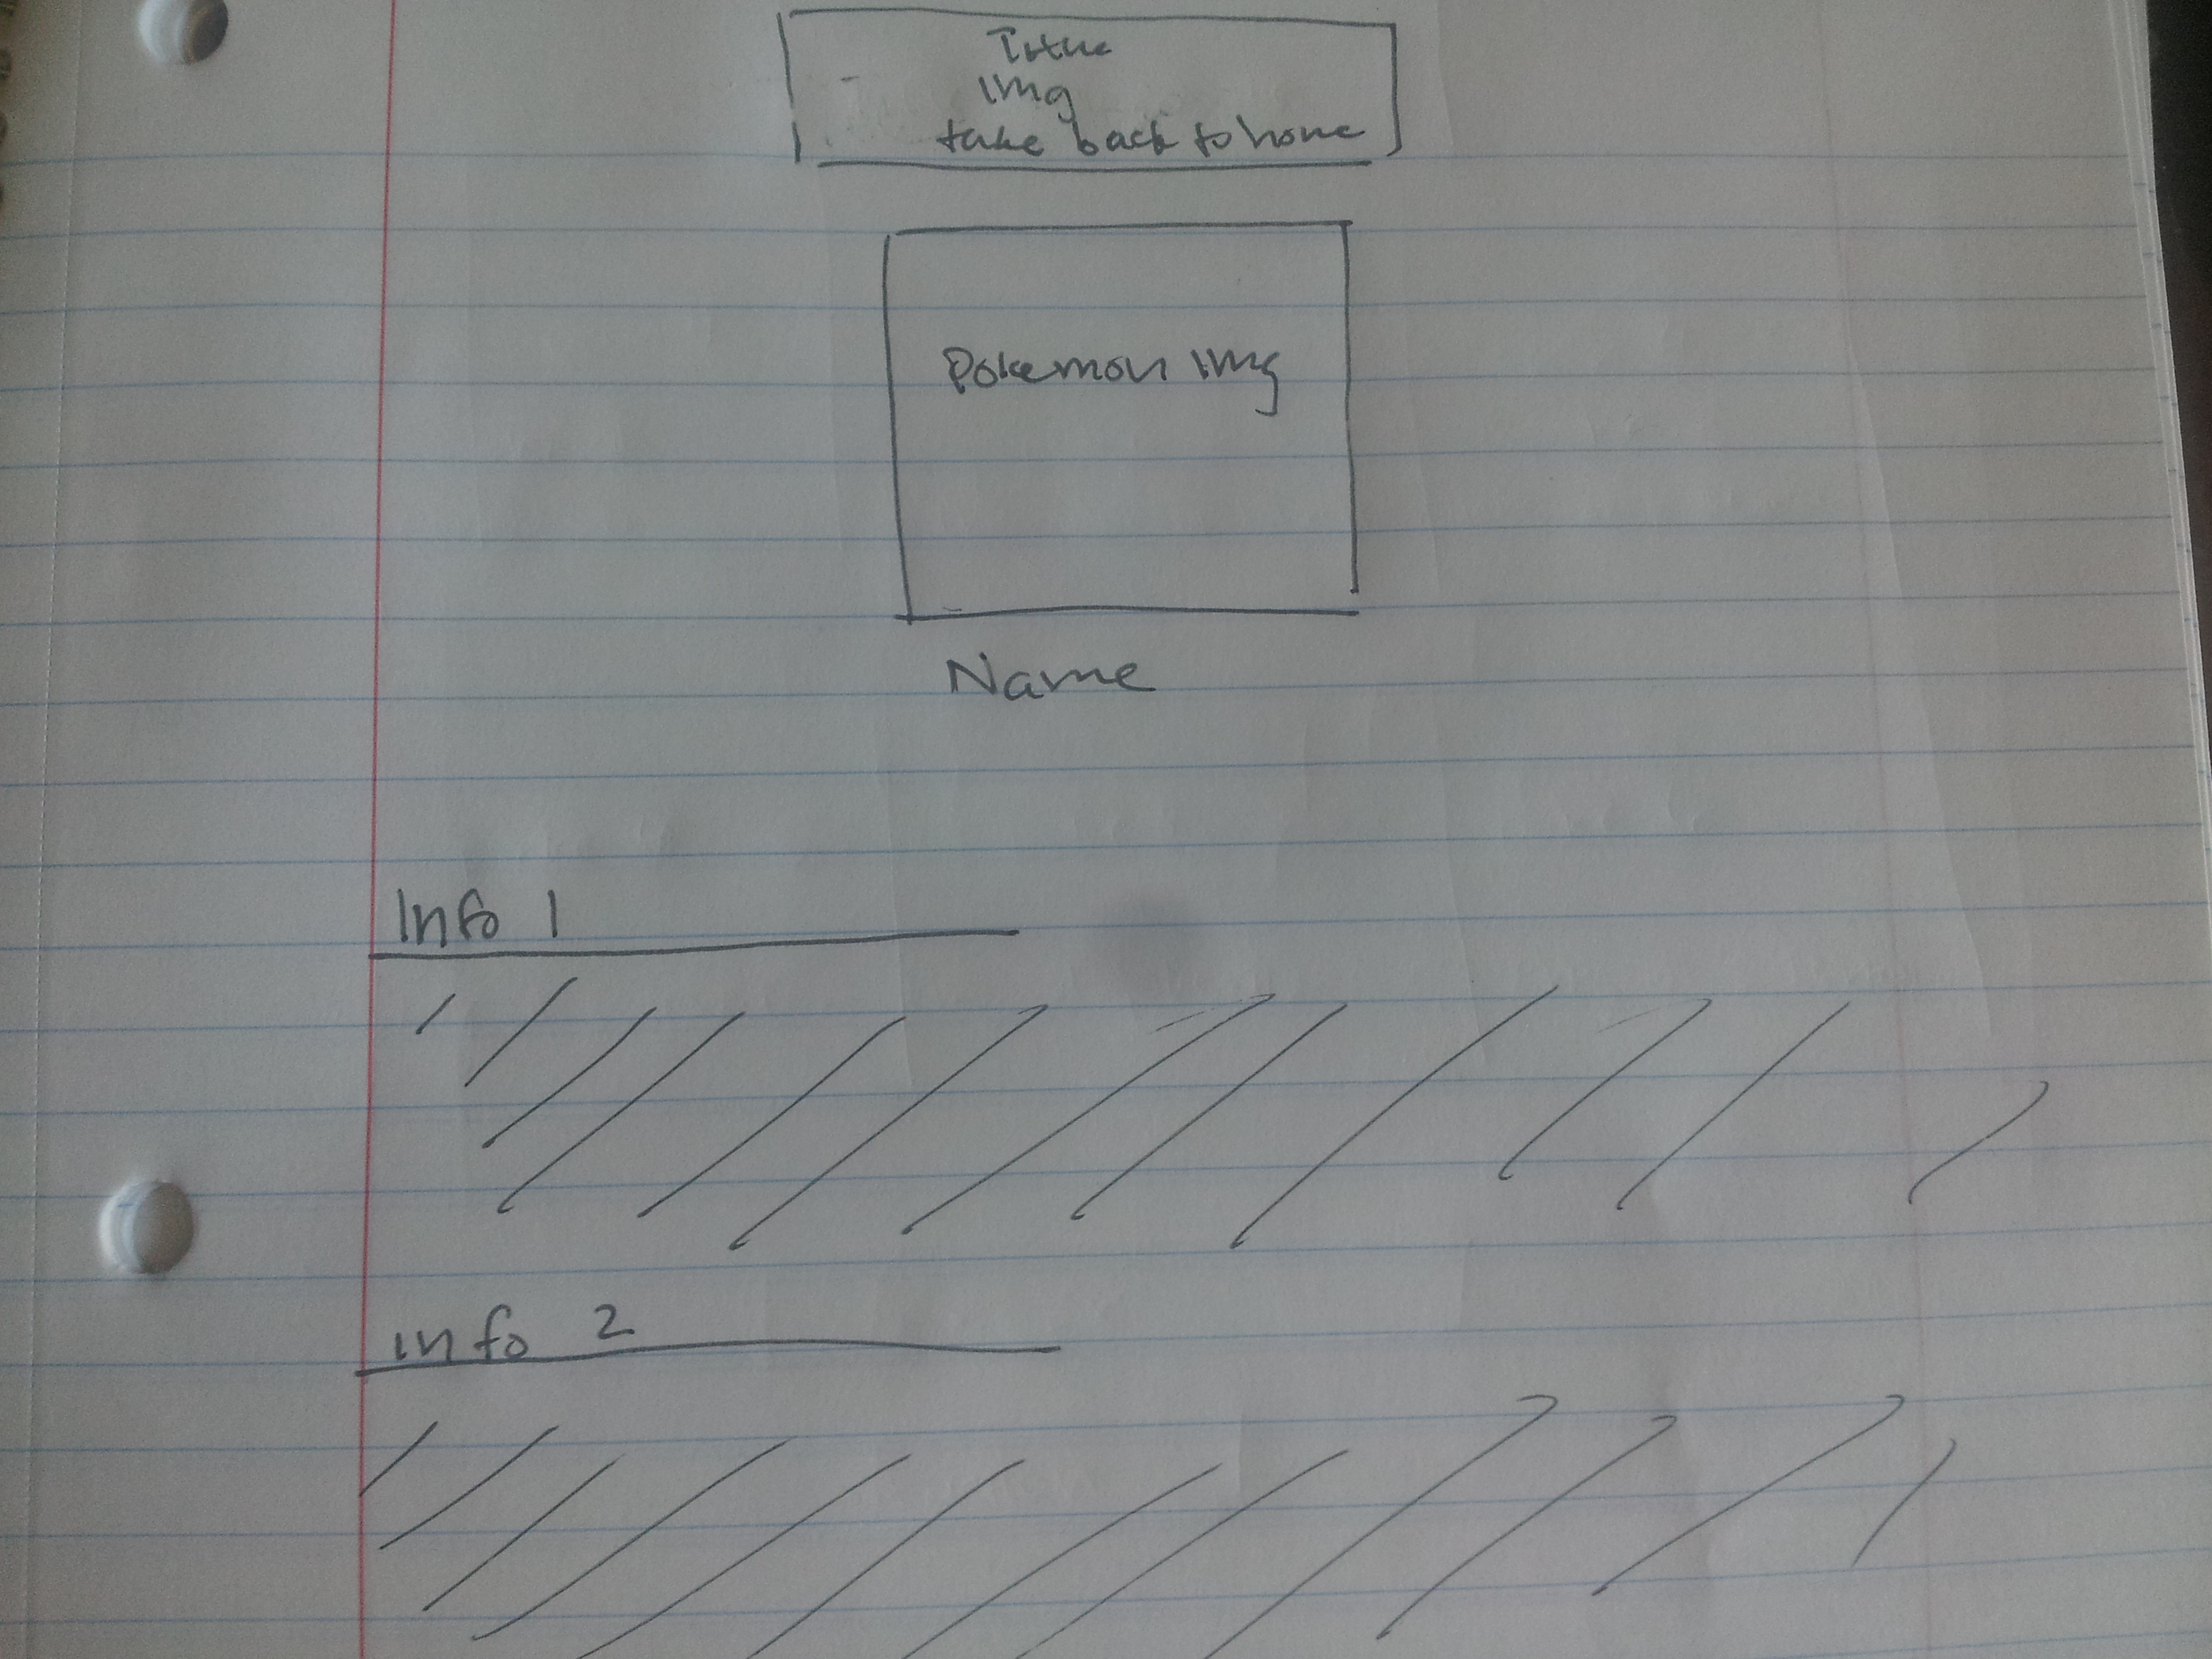 Title
img
take back to home
Pokemon img
Name
Info 1
info 2